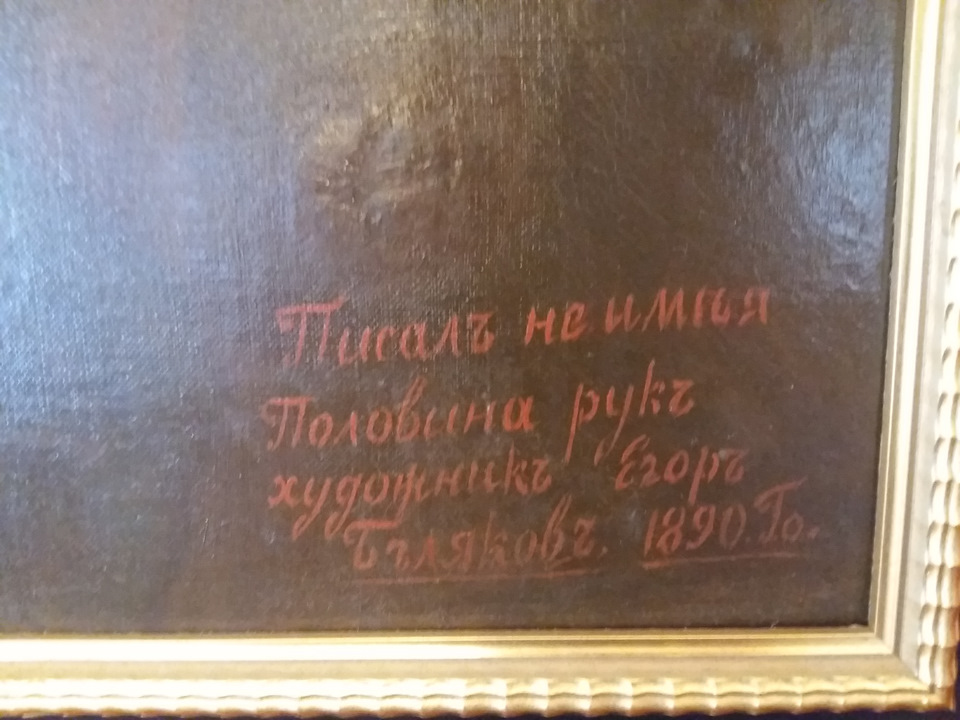 Писалъ не имѣя
Половина рукъ
художникъ Егоръ
Бѣляковъ. 1890. Го.